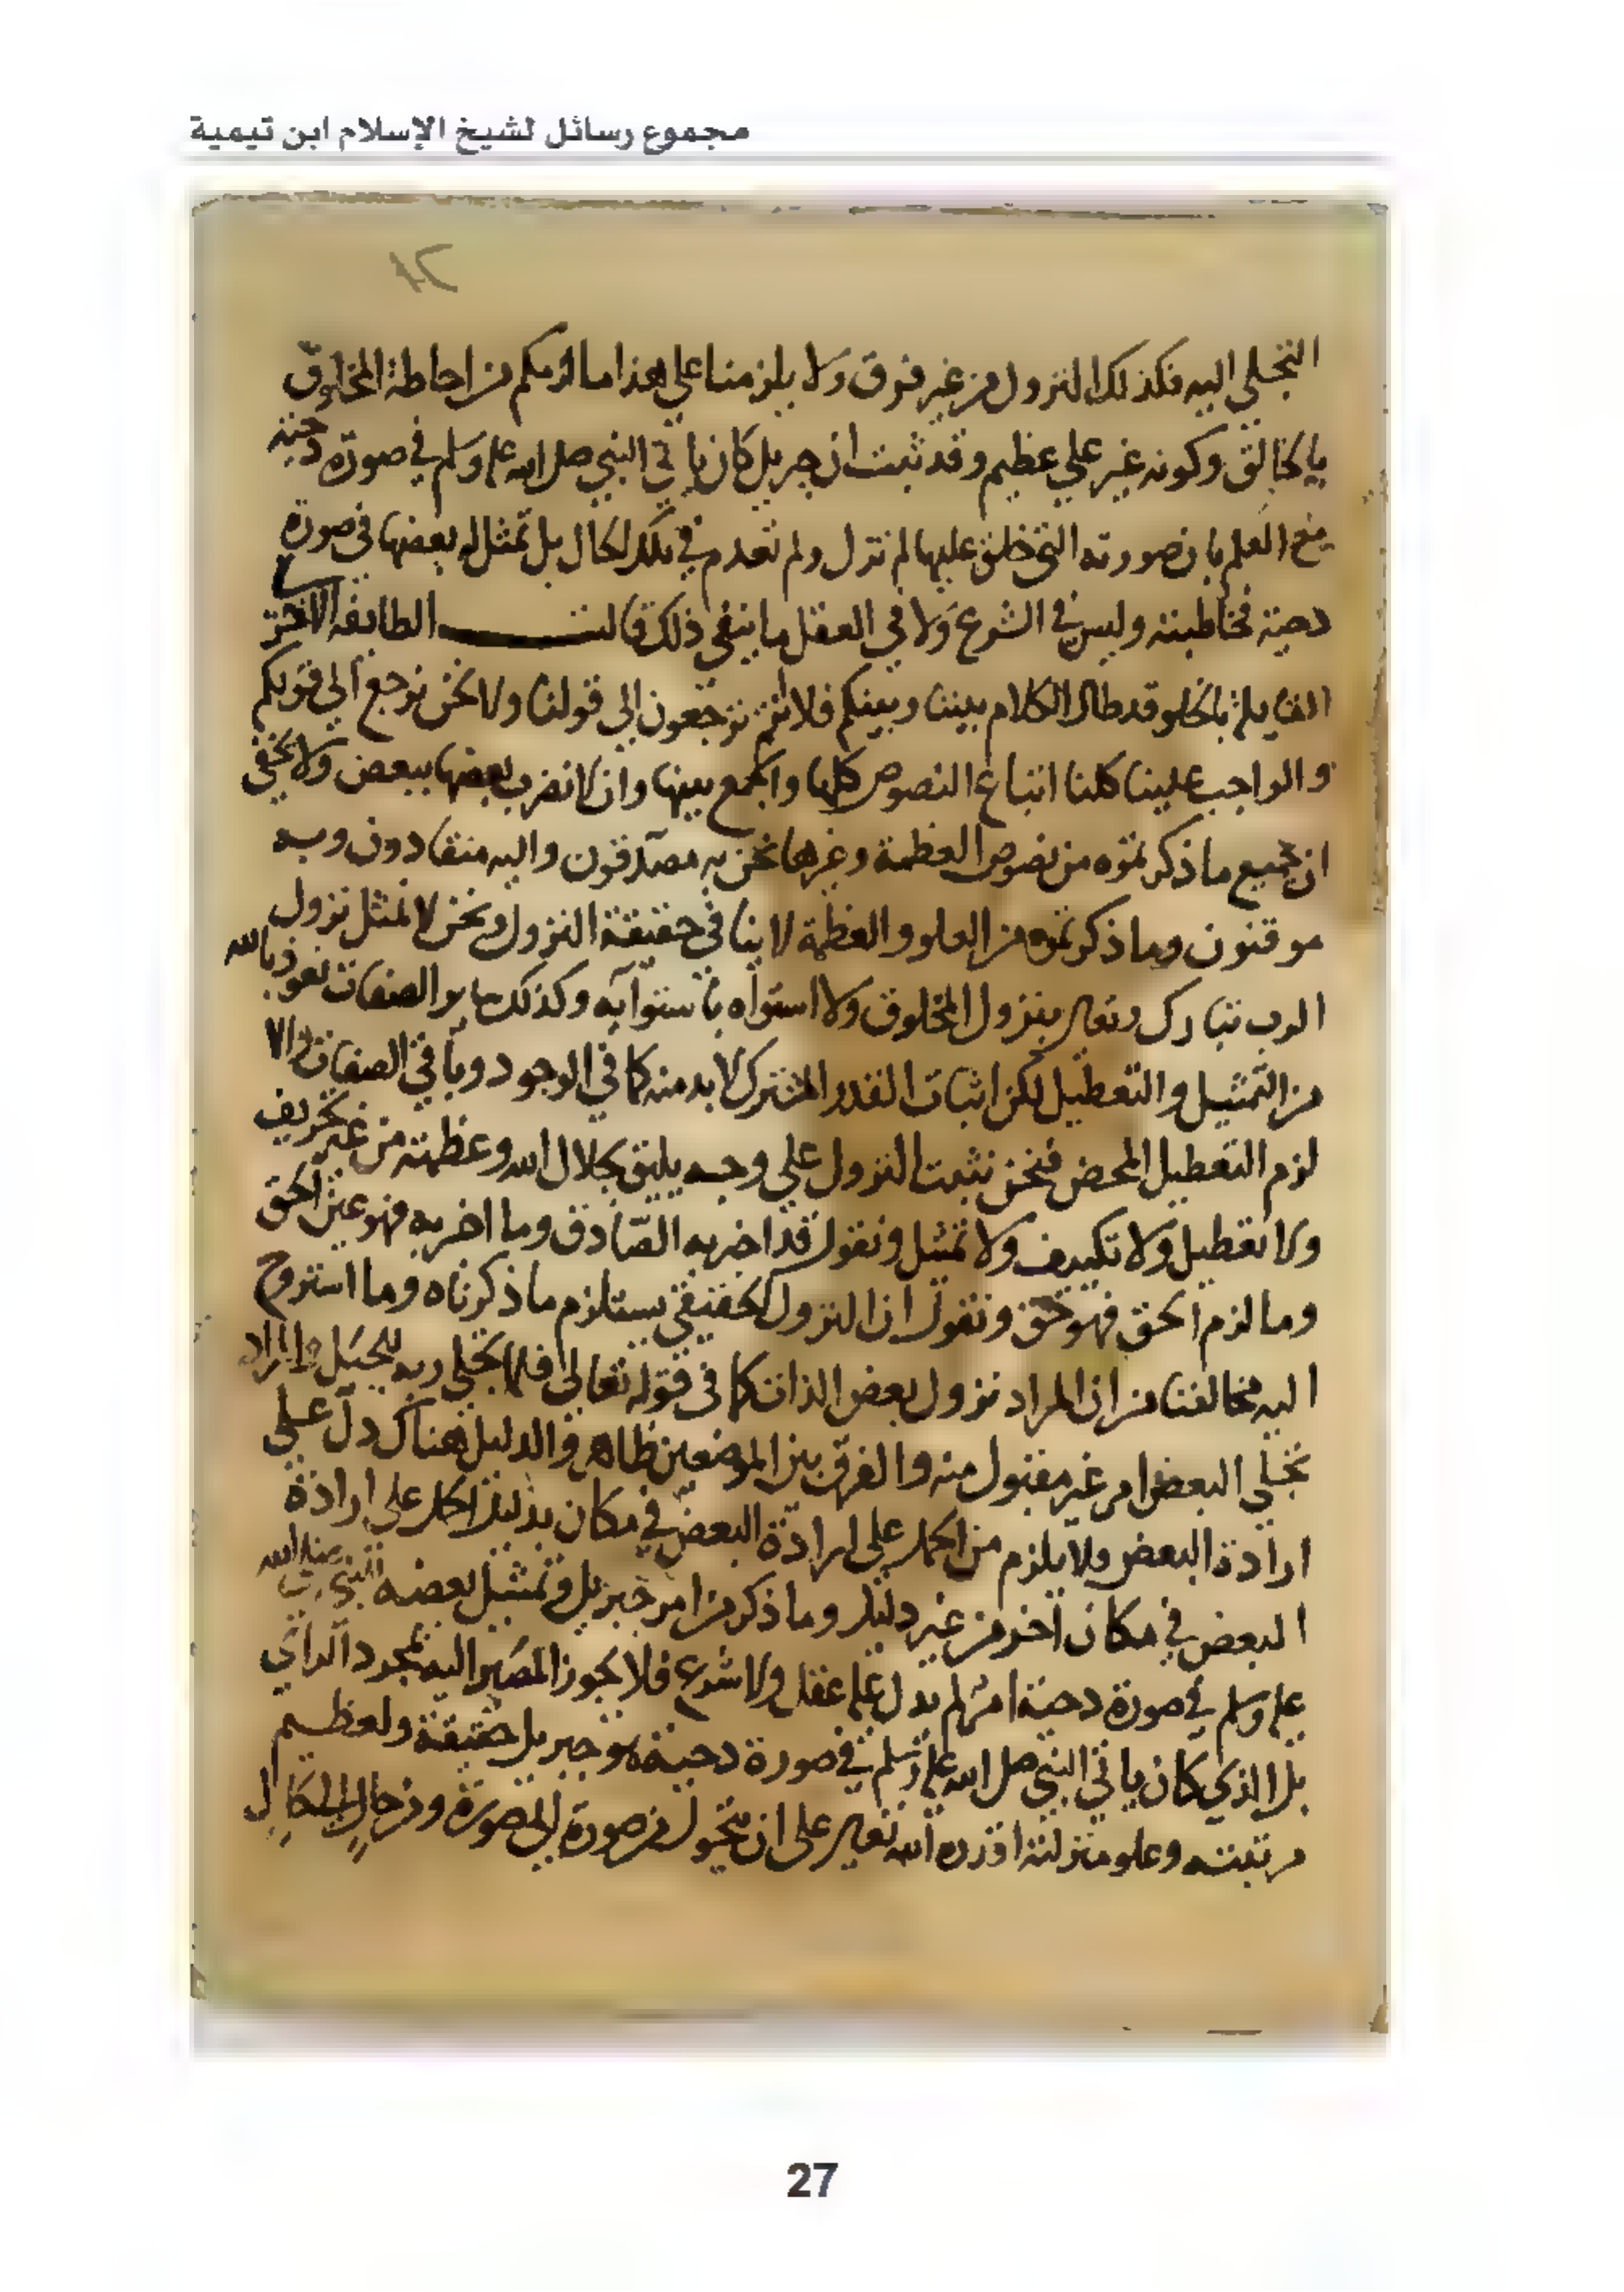 مجموع رسائل لشيخ الإسلام ابن تيمية
التجلي اليه فكذلك النزول من غير فوق ولا يلزمنا علي هذا ما الزمكم من احاطة المخلوق
بالخالق وكونه غير علي عظيم وقد ثبت ان جبريل كان ياتي النبي صلى الله عليه وسلم في صورة دحية
مع العلم بان صورته التي خلق عليها لم تزل ولم تعدم في تلك الحال بل تمثل له بعضها في صورة
دحية فخاطبته وليس في الشرع ولا في العقل ما ينفي ذلك قالت الطايفة الاخرى
القايلة بالخلو قد طال الكلام بيننا وبينكم فلا انتم ترجعون الى قولنا ولا نحن نرجع الى قولكم
والواجب علينا كلنا اتباع النصوص كلها والجمع بينها وان لا نضرب بعضها ببعض ولا يخفى
ان جميع ما ذكرتموه من نصوص العظمة وغيرها نحن به مصدقون واليه منقادون وبه
موقنون وما ذكرتموه من العلو والعظمة لا ينافي حقيقة النزول ونحن لا نمثل نزول
الرب تبارك وتعالى بنزول المخلوق ولا استواه باستوايه وكذلك ساير الصفات نعوذ بالله
من التمثيل والتعطيل لكن اثبات القدر المشترك لا بد منه كما في الوجود وباقي الصفات والا
لزم التعطيل المحض فنحن نثبت النزول علي وجه يليق بجلال الله وعظمته من غير تحريف
ولا تعطيل ولا تكييف ولا تمثيل ونقول قد اخبر به الصادق وما اخبر به فهو عين الحق
وما لزم الحق فهو حق ونقول ان النزول الحقيقي يستلزم ما ذكرناه وما استروح
اليه مخالفنا من ان المراد نزول بعض الذات كما في قوله تعالى فلما تجلى ربه للجبل والمراد
تجلي البعض امر غير مقبول منه والفرق بين الموضعين ظاهر والدليل هناك دل علي
ارادة البعض ولا يلزم من الحمل على ارادة البعض في مكان بدليل الحمل على ارادة
البعض في مكان آخر من غير دليل وما ذكر من امر جبريل وتمثيل بعضه للنبي صلى الله
عليه وسلم في صورة دحية امر لم يدل عليه عقل ولا شرع فلا يجوز المصير اليه بمجرد الراي
بل الذي كان ياتي النبي صلى الله عليه وسلم في صورة دحية هو جبريل حقيقة ولعظيم
مرتبته وعلو منزلته اقدره الله تعالى على ان يتحول من صورة الى صورة ومن حال الى حال
27